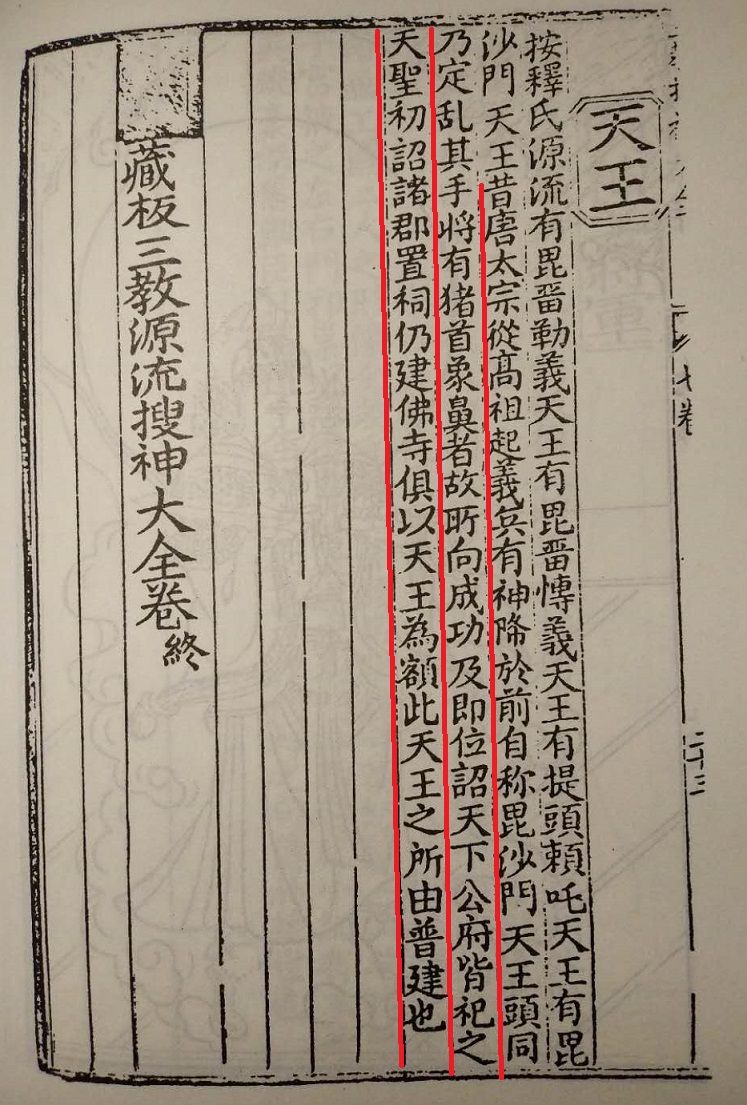 天王
按釋氏源流有毘畱勒義天王有毘畱愽義天王有提頭頼吒天王有毘
沙門天王昔唐太宗從高祖起義兵有神降於前自称毘沙門天王頭同
乃定乱其手將有猪首象鼻者故所向成功及即位詔天下公府皆祀之
天聖初詔諸郡置祠仍建佛寺俱以天王為額此天王之所由普建也
藏板三教源流搜神大全卷終
七卷
二十三